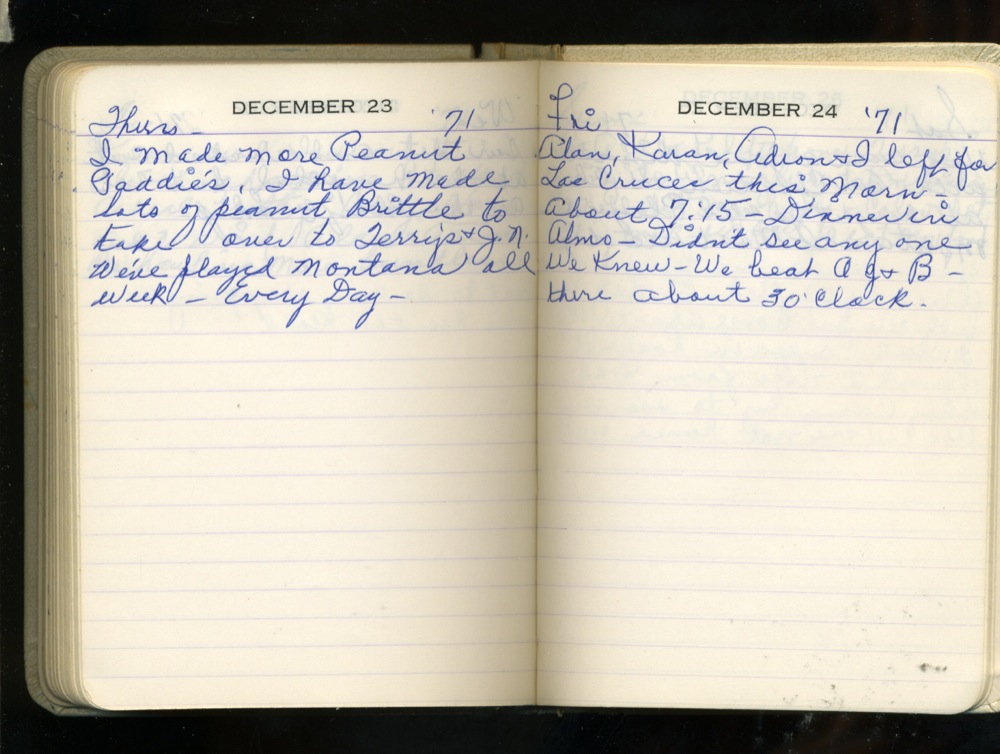 DECEMBER 23
Thurs - '71
I made more Peanut
Paddie's, I have made
lots of peanut Brittle to
take over to Terrys & J.N.
We've played Montana all
week - Every Day -
DECEMBER 24
Fri '71
Alan, Karan, Adron & I left for
Las Cruces this Morn -
About 7:15 - Dinner in
Almo - Didn't see any one
We Knew - We beat A J & B -
there about 3 O'Clock.